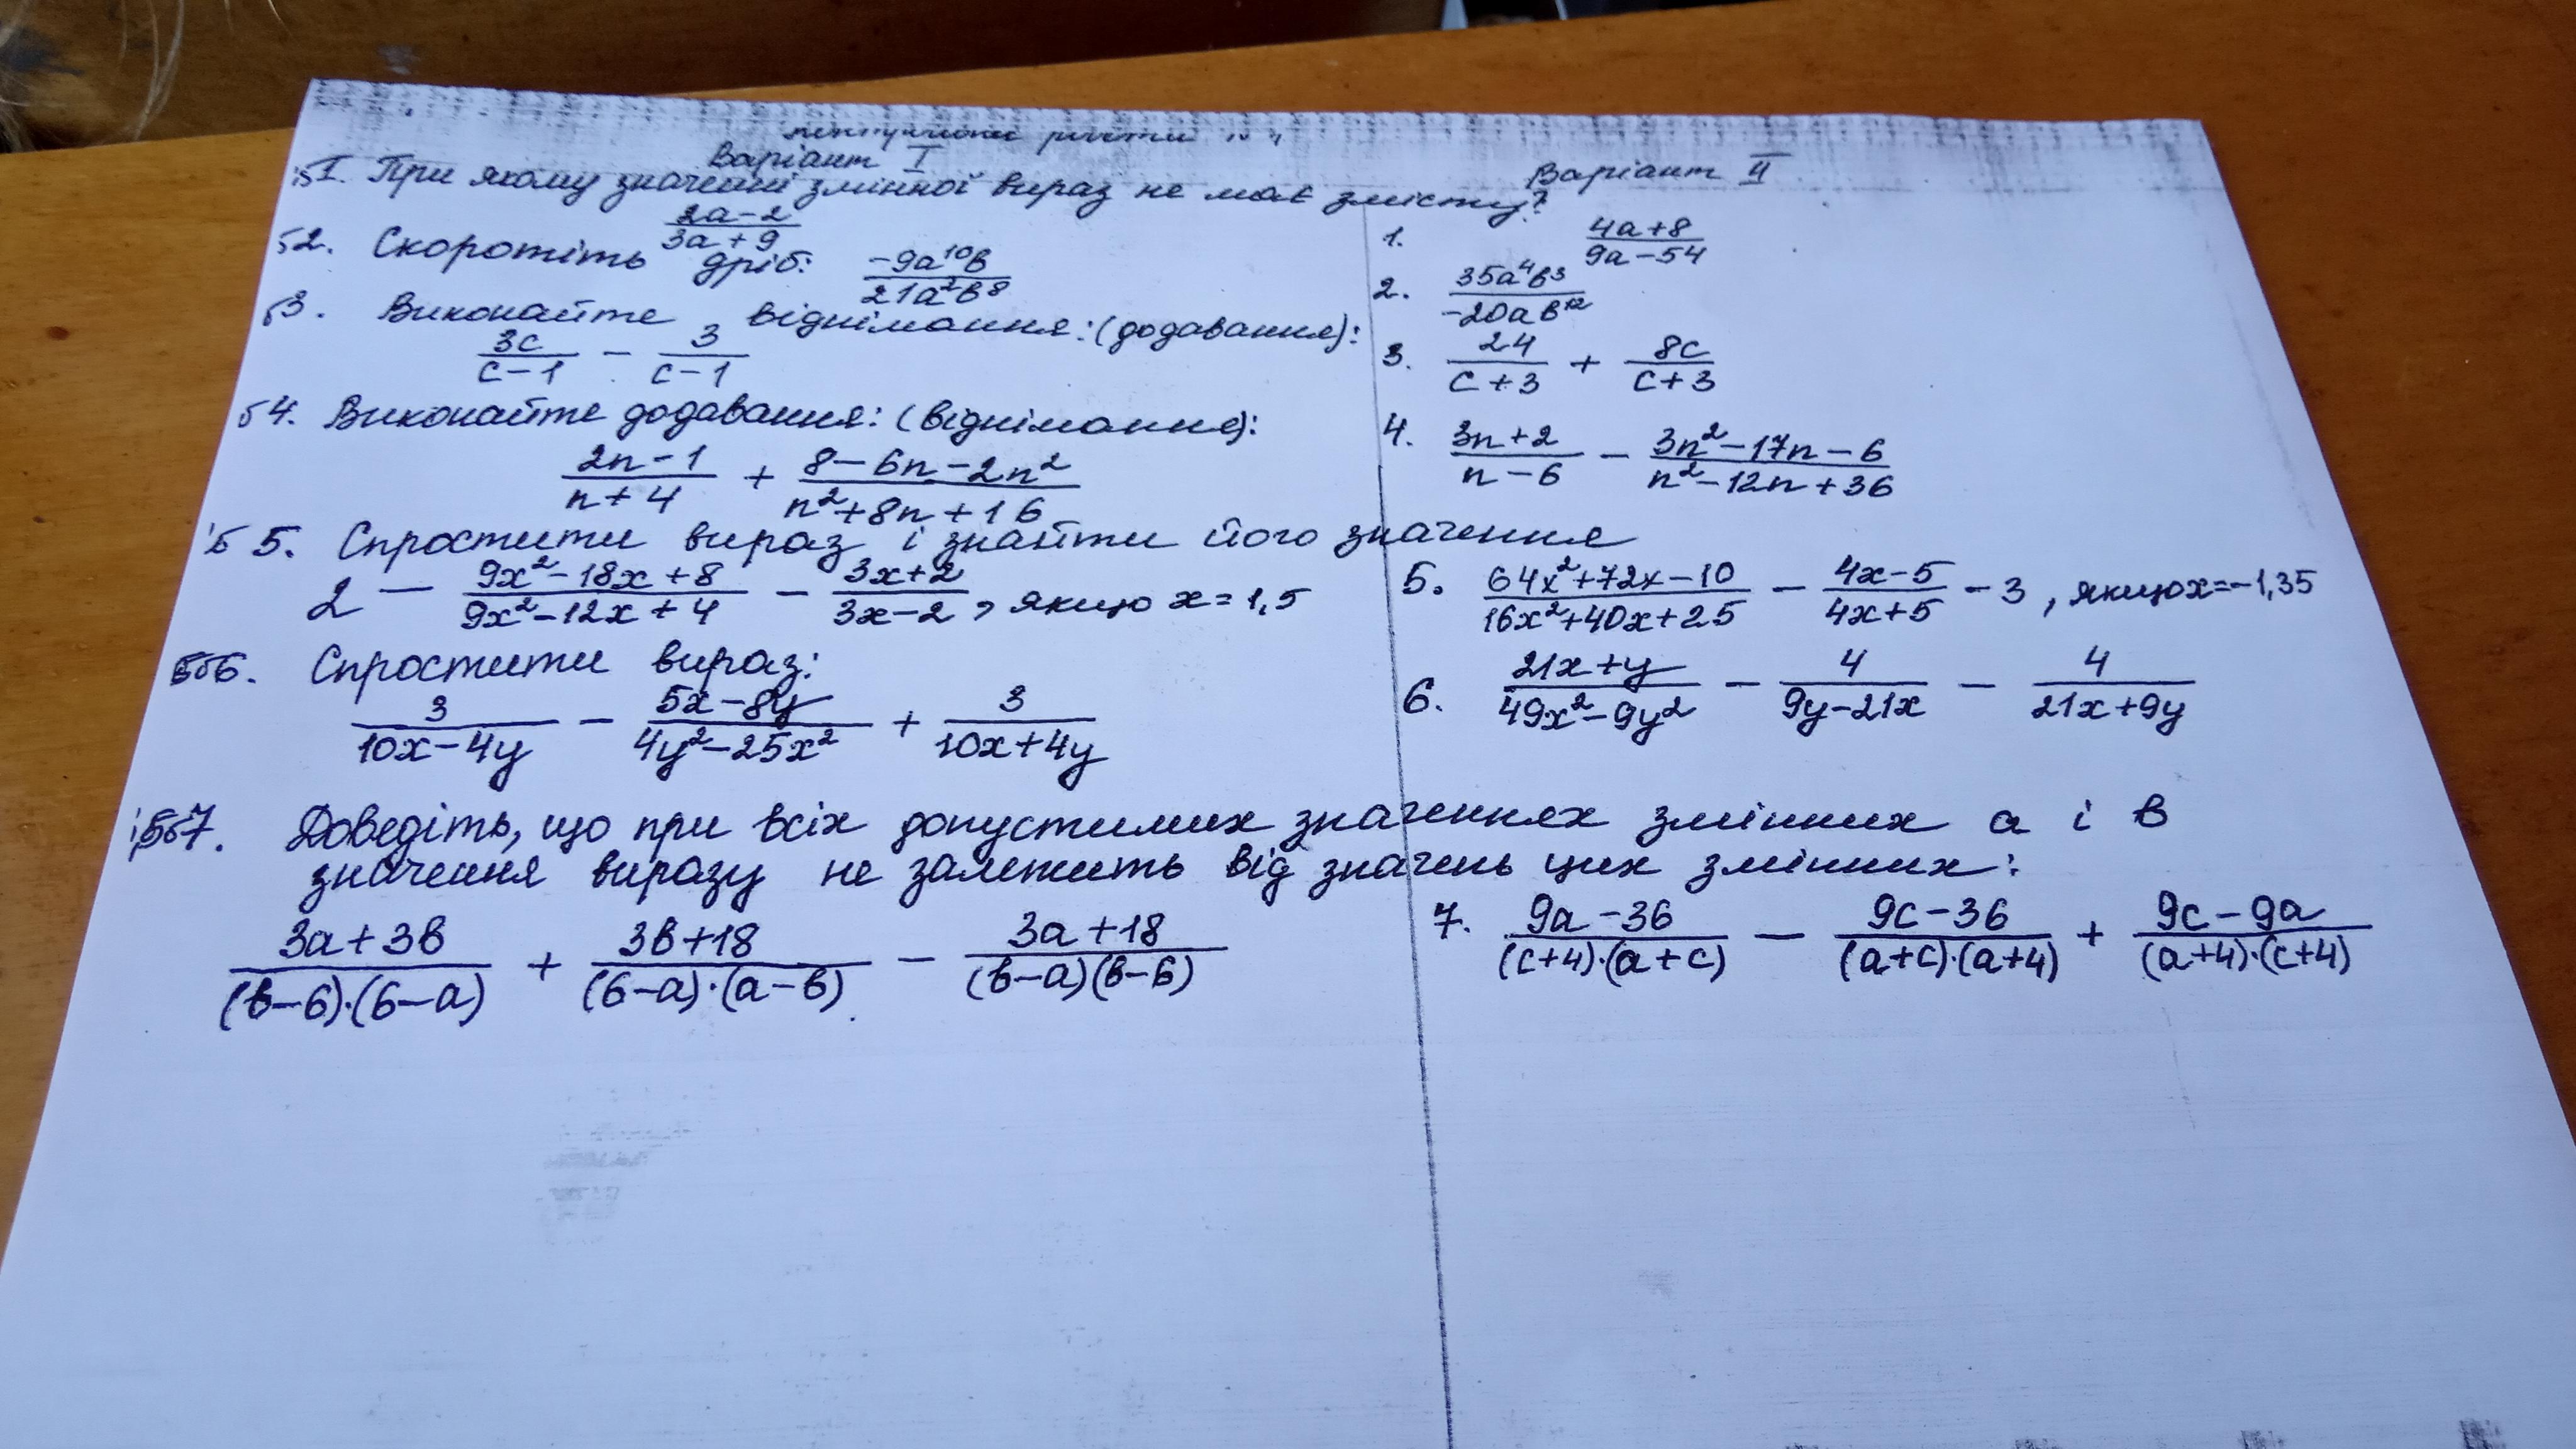 Варіант I
1. При якому значенні змінної вираз не має змісту?
(2a-2)/(3a+9)
2. Скоротіть дріб: (-9a^10b)/(21a^2b^8)
3. Виконайте віднімання: (додавання):
3c/(c-1) - 3/(c-1)
4. Виконайте додавання: (віднімання):
(2n-1)/(n+4) + (8-6n-2n^2)/(n^2+8n+16)
5. Спростити вираз і знайти його значення
2 - (9x^2-18x+8)/(9x^2-12x+4) - (3x+2)/(3x-2), якщо x=1,5
6. Спростити вираз:
3/(10x-4y) - (5x-8y)/(4y^2-25x^2) + 3/(10x+4y)
7. Доведіть, що при всіх допустимих значеннях змінних a і b
значення виразу не залежить від значень цих змінних:
(3a+3b)/((b-6)·(6-a)) + (3b+18)/((6-a)·(a-b)) - (3a+18)/((b-a)(b-6))
Варіант II
1. (4a+8)/(9a-54)
2. (35a^4b^3)/(-20ab^12)
3. 24/(c+3) + 8c/(c+3)
4. (3n+2)/(n-6) - (3n^2-17n-6)/(n^2-12n+36)
5. (64x^2+72x-10)/(16x^2+40x+25) - (4x-5)/(4x+5) - 3, якщо x=-1,35
6. (21x+y)/(49x^2-9y^2) - 4/(9y-21x) - 4/(21x+9y)
7. (9a-36)/((c+4)·(a+c)) - (9c-36)/((a+c)·(a+4)) + (9c-9a)/((a+4)·(c+4))